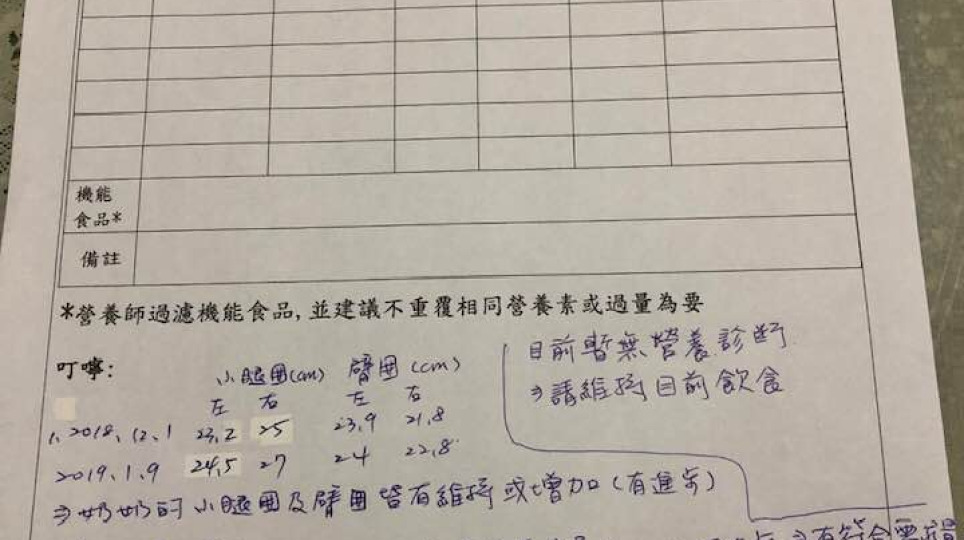 機能
食品*
備註
*營養師過濾機能食品,並建議不重覆相同營養素或過量為要
叮嚀:
小腿圍(cm) 臂圍(cm)
左 右 左 右
1. 2018.12.1 23.2 25 23.9 21.8
2019.1.9 24.5 27 24 22.8
⇒奶奶的小腿圍及臂圍皆有維持或增加(有進步)
目前暫無營養診斷
⇒請維持目前飲食
有符合需